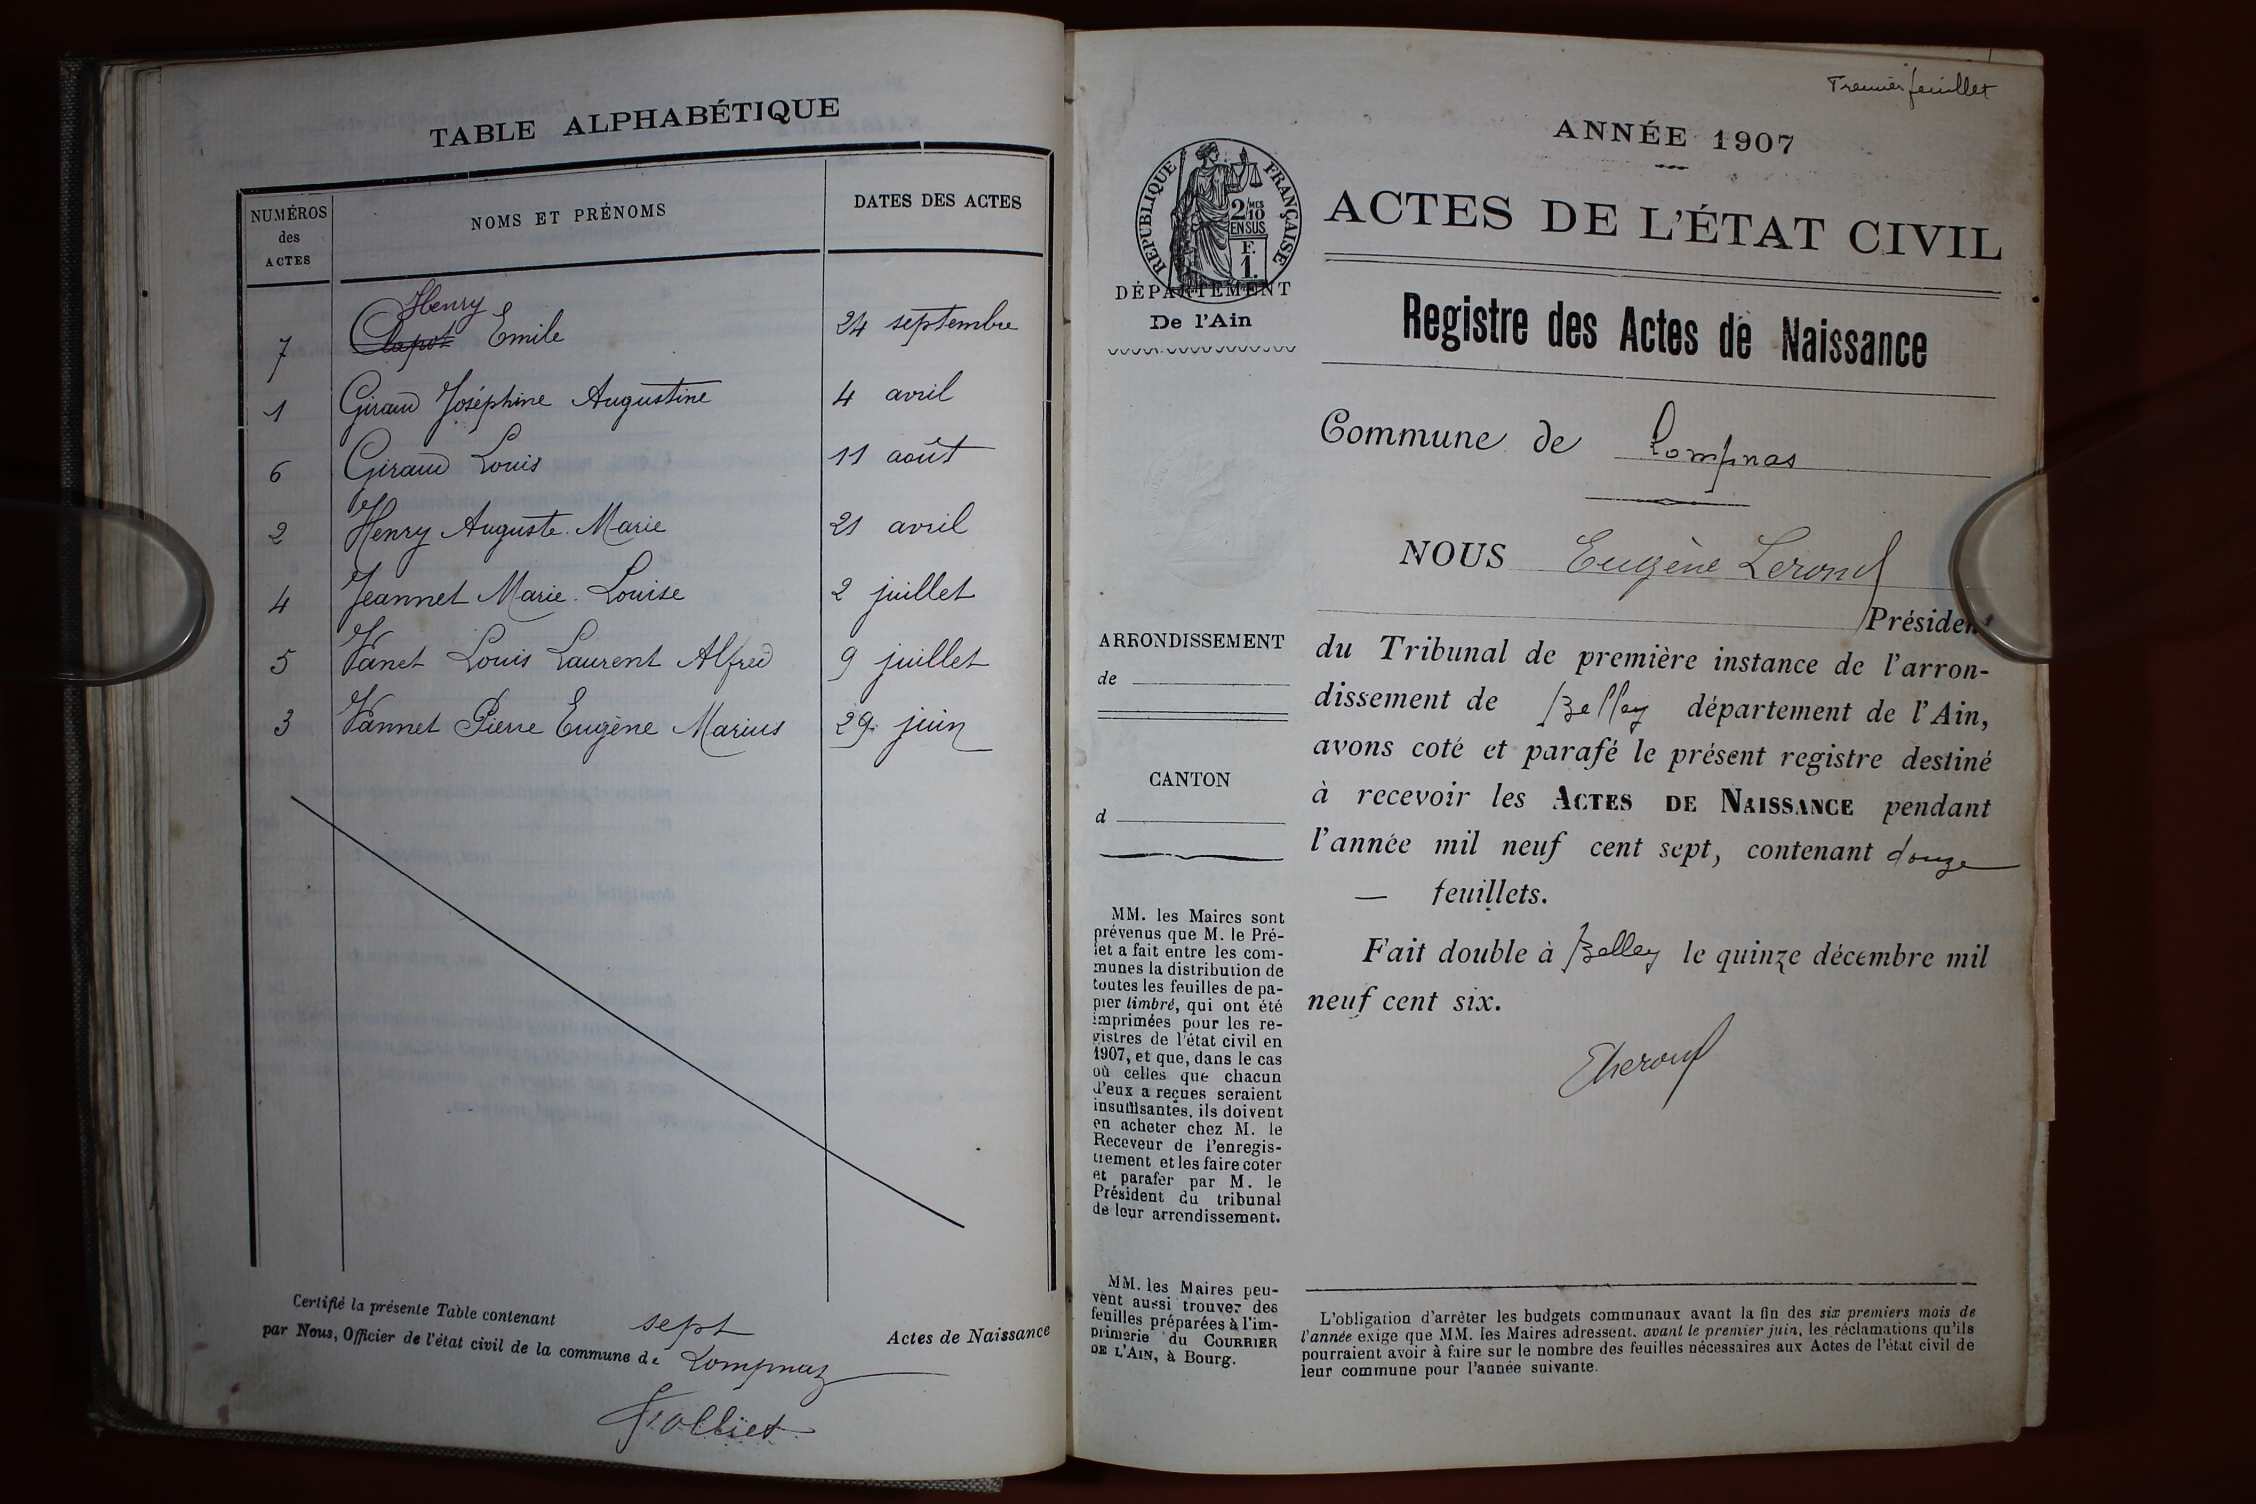 TABLE ALPHABÉTIQUE
NUMÉROS des ACTES
NOMS ET PRÉNOMS
DATES DES ACTES
Henry
7 Emile 24 septembre
1 Giraud Joséphine Augustine 4 avril
6 Giraud Louis 11 août
2 Henry Auguste Marie 21 avril
4 Jeannet Marie Louise 2 juillet
5 Vanet Louis Laurent Alfred 9 juillet
3 Vannet Pierre Eugène Marius 29 juin
Certifié la présente Table contenant sept Actes de Naissance
par Nous, Officier de l'état civil de la commune de Lompnaz
Trolliet
Premier feuillet
ANNÉE 1907
ACTES DE L'ÉTAT CIVIL
RÉPUBLIQUE FRANÇAISE
2/10 MES
EN SUS
F.
1.
DÉPARTEMENT
De l'Ain
Registre des Actes de Naissance
Commune de Lompnas
NOUS Eugène Lerond
Président
du Tribunal de première instance de l'arron-
dissement de Belley département de l'Ain,
avons coté et parafé le présent registre destiné
à recevoir les ACTES DE NAISSANCE pendant
l'année mil neuf cent sept, contenant douze
— feuillets.
Fait double à Belley le quinze décembre mil
neuf cent six.
ARRONDISSEMENT
de
CANTON
d
MM. les Maires sont
prévenus que M. le Pré-
fet a fait entre les com-
munes la distribution de
toutes les feuilles de pa-
pier timbré, qui ont été
imprimées pour les re-
gistres de l'état civil en
1907, et que, dans le cas
où celles que chacun
d'eux a reçues seraient
insuffisantes, ils doivent
en acheter chez M. le
Receveur de l'enregis-
trement et les faire coter
et parafer par M. le
Président du tribunal
de leur arrondissement.
MM. les Maires peu-
vent aussi trouver des
feuilles préparées à l'im-
primerie du COURRIER
DE L'AIN, à Bourg.
L'obligation d'arrêter les budgets communaux avant la fin des six premiers mois de
l'année exige que MM. les Maires adressent, avant le premier juin, les réclamations qu'ils
pourraient avoir à faire sur le nombre des feuilles nécessaires aux Actes de l'état civil de
leur commune pour l'année suivante.